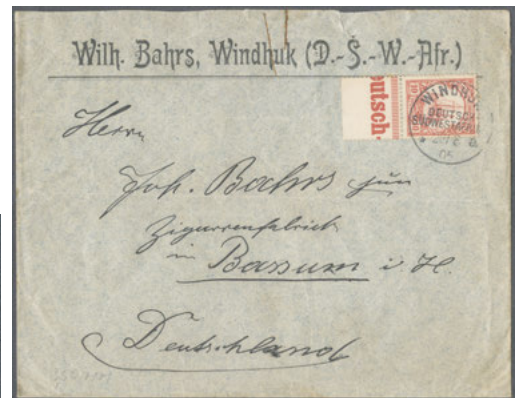 Wilh. Bahrs, Windhuk (D.-S.-W.-Afr.)
eutsch.
10 10
WINDHUK
DEUTSCH
SÜDWESTAFR
05
Herrn
Joh. Bahrs jun
Zigarrenfabrick
in Bassum i. H.
Deutschland